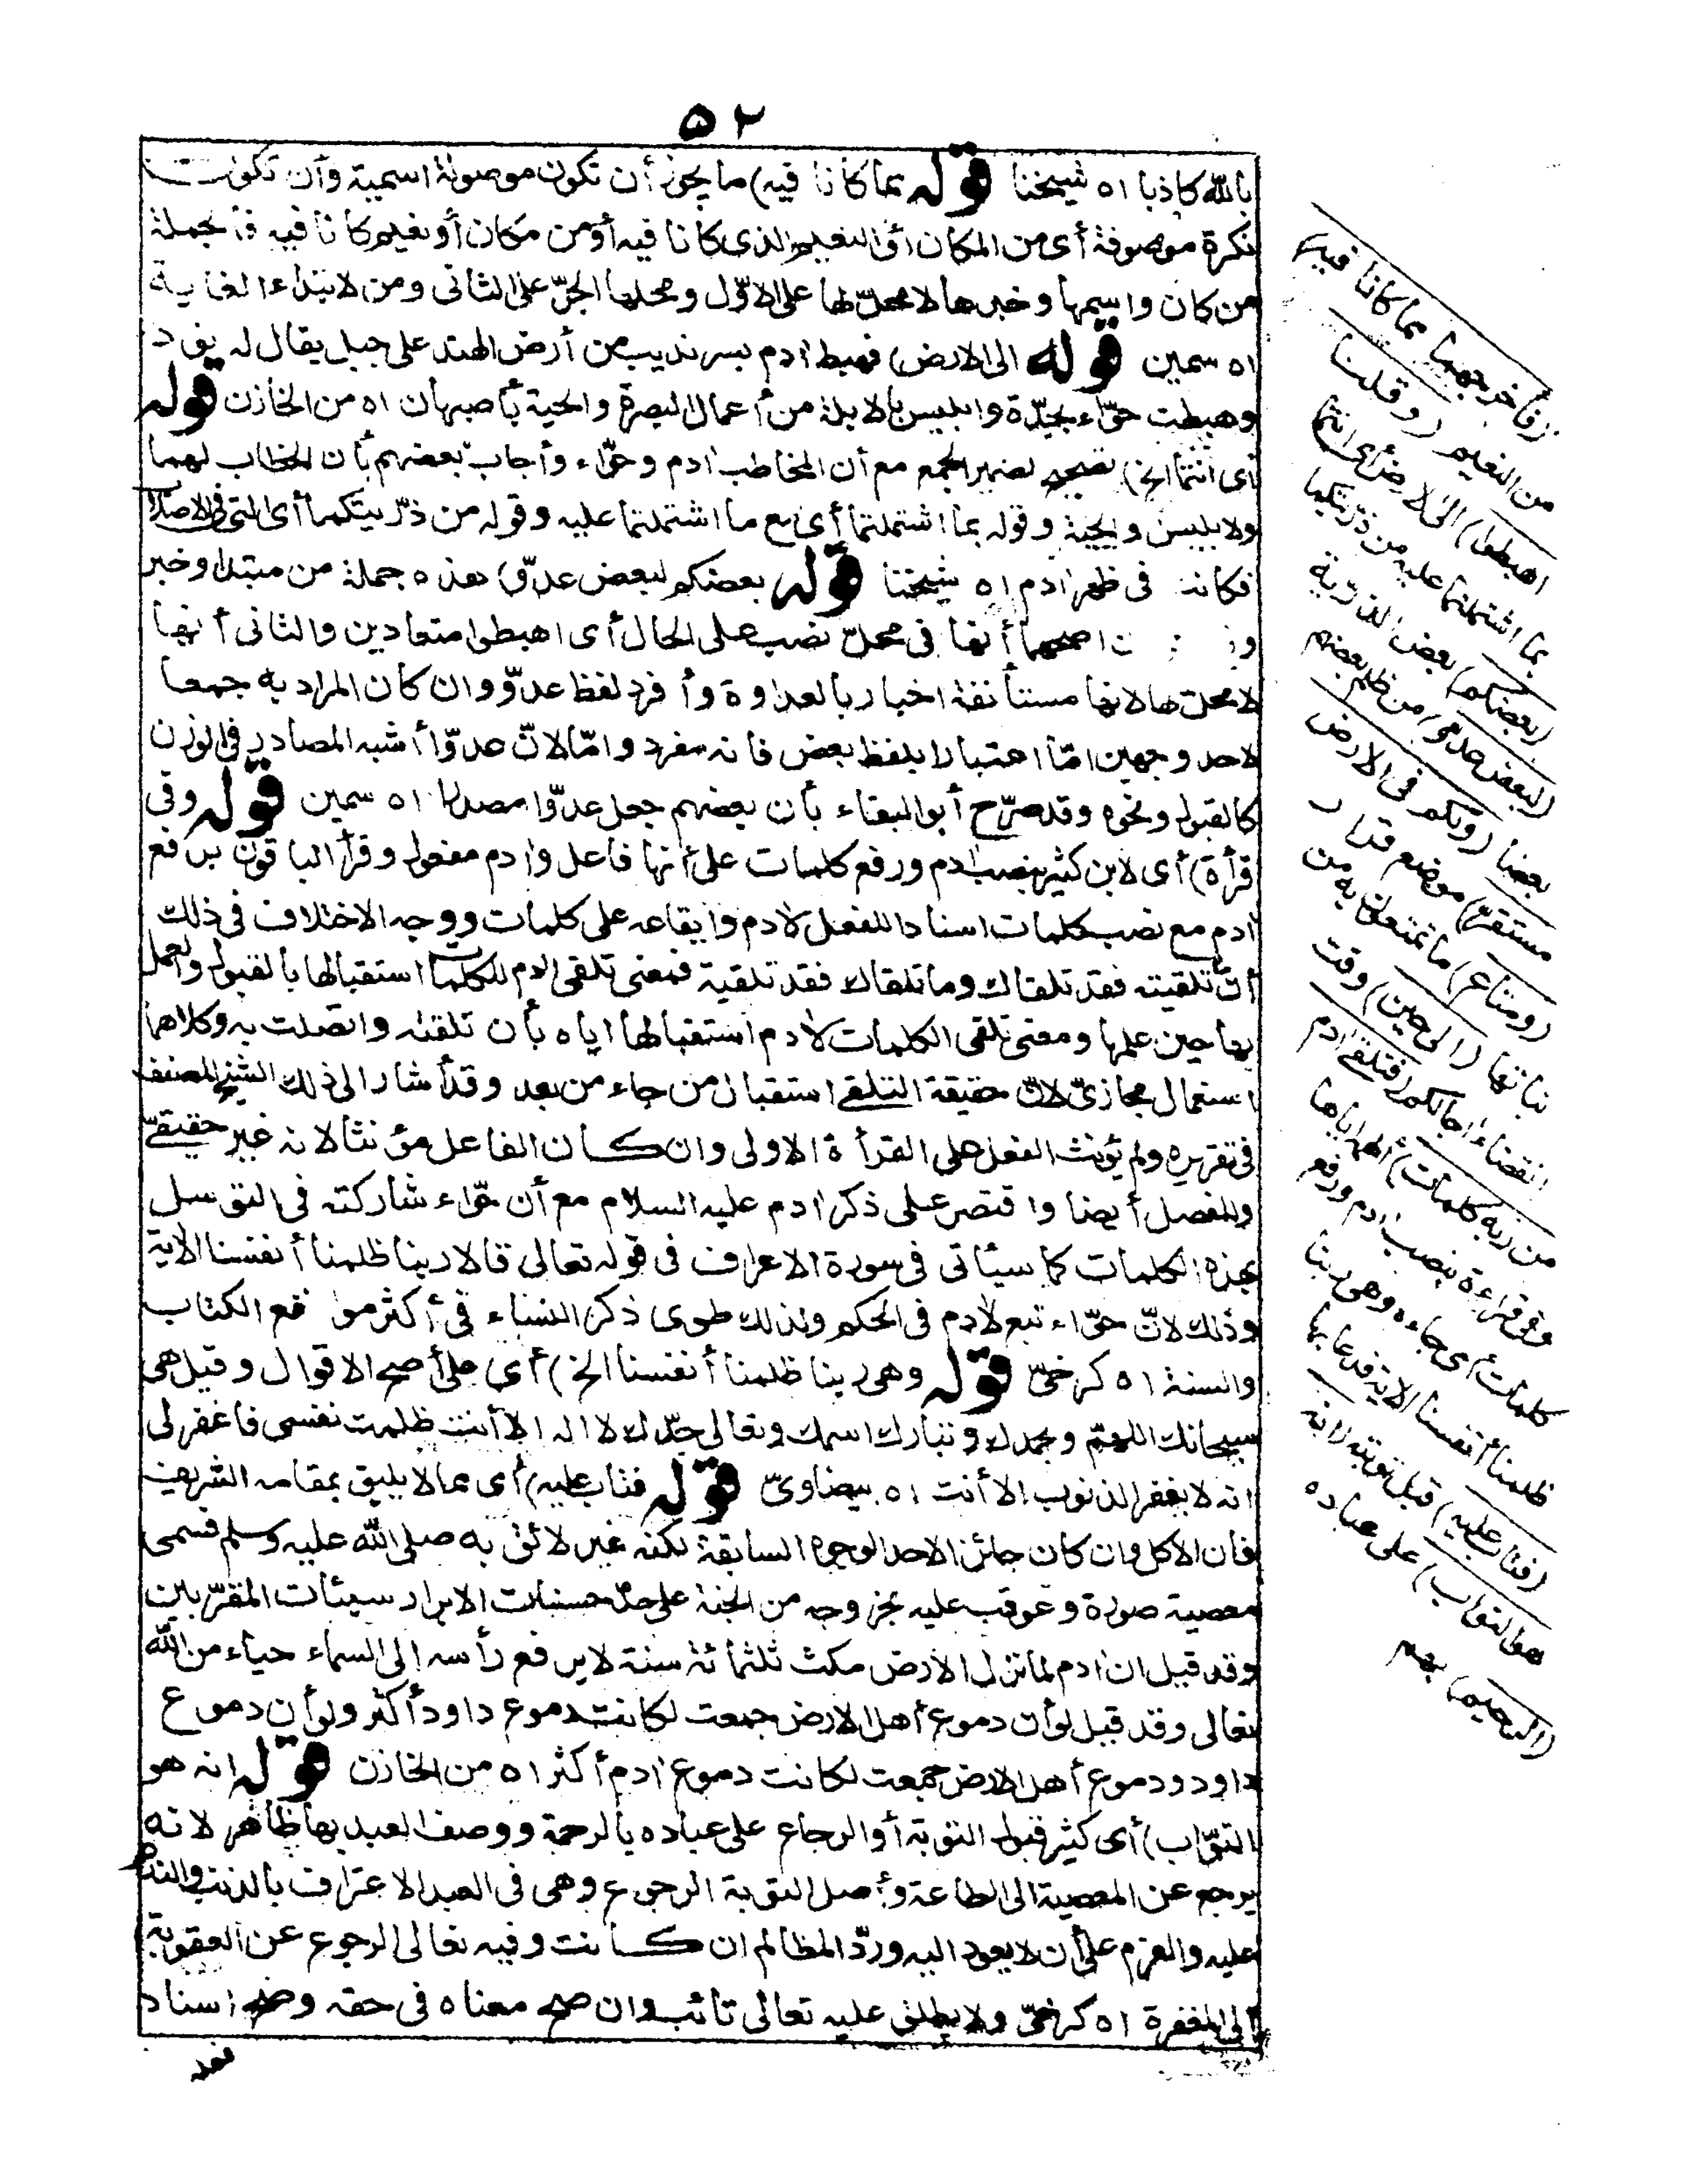 ٥٢
بالله كاذبا اه شيخنا قوله مما كانا فيه) ما يجوز أن تكون موصولة اسمية وأن تكون
نكرة موصوفة أى من المكان أو النعيم الذى كانا فيه أو من مكان أو نعيم كانا فيه فالجملة
من كان واسمها وخبرها لا محلّ لها على الاوّل ومحلها الجرّ على الثانى ومن لابتداء الغاية
اه سمين قوله الى الارض) فهبط ادم بسرنديب من أرض الهند على جبل يقال له نود
وهبطت حوّاء بجدّة وابليس بالابلة من أعمال البصرة والحية بأصبهان اه من الخازن قوله
أى أنتما الخ) تصحيح لضمير الجمع مع أن المخاطب ادم وحوّاء وأجاب بعضهم بأن الخطاب لهما
ولابليس والحية وقوله بما اشتملتما أى مع ما اشتملتما عليه وقوله من ذرّيتكما أى التى فى الاصلاب
فكانت فى ظهر ادم اه شيخنا قوله بعضكم لبعض عدوّ) هذه جملة من مبتدا وخبر
اصحهما أنها فى محلّ نصب على الحال أى اهبطوا متعادين والثانى أنها
لا محل لها لانها مستأنفة اخبار بالعداوة وأفرد لفظ عدوّ وان كان المراد به جمعا
لاحد وجهين امّا اعتبارا بلفظ بعض فانه مفرد وامّا لانّ عدوّا أشبه المصادر فى الوزن
كالقبول ونحوه وقد صرّح أبو البقاء بأن بعضهم جعل عدوّا مصدرا اه سمين قوله وفى
قرأة) أى لابن كثير بنصب ادم ورفع كلمات على أنها فاعل وادم مفعول وقرأ الباقون برفع
ادم مع نصب كلمات اسنادا للفعل لادم وايقاعه على كلمات ووجه الاختلاف فى ذلك
أنّ تلقيته فقد تلقاك وما تلقاك فقد تلقيته فمعنى تلقى ادم للكلمات استقبالها بالقبول والعمل
بها حين علمها ومعنى تلقى الكلمات لادم استقبالها اياه بأن تلقته واتصلت به وكلاهما
استعمال مجازىّ لانّ حقيقة التلقى استقبال من جاء من بعد وقد أشار الى ذلك الشيخ المصنف
فى تقريره ولم يؤنث الفعل على القرأة الاولى وان كان الفاعل مؤنثا لانه غير حقيقىّ
وللفصل أيضا واقتصر على ذكر ادم عليه السلام مع أن حوّاء شاركته فى التوسل
بهذه الكلمات كما سيأتى فى سورة الاعراف فى قوله تعالى قالا ربنا ظلمنا أنفسنا الاية
وذلك لانّ حوّاء تبع لادم فى الحكم ولذلك طوى ذكر النساء فى أكثر مواقع الكتاب
والسنة اه كرخىّ قوله وهى ربنا ظلمنا أنفسنا الخ) أى على أصح الاقوال وقيل هى
سبحانك اللهمّ وبحمدك وتبارك اسمك وتعالى جدّك لا اله الا أنت ظلمت نفسى فاغفر لى
انه لا يغفر الذنوب الا أنت اه بيضاوىّ قوله فتاب عليه) أى مما لا يليق بمقامه الشريف
فان الاكل وان كان جائزا لاحد الوجوه السابقة لكنه غير لائق به صلى الله عليه وسلم فسمى
معصية صورة وعوقب عليه بخروجه من الجنة على حدّ حسنات الابرار سيئات المقرّبين
وقد قيل ان ادم لما نزل الارض مكث ثلثمائة سنة لا يرفع رأسه إلى السماء حياء من الله
تعالى وقد قيل لو أن دموع أهل الارض جمعت لكانت دموع داود أكثر ولو أن دموع
داود ودموع أهل الارض جمعت لكانت دموع ادم أكثر اه من الخازن قوله انه هو
التوّاب) أى كثير قبول التوبة أو الرجاع على عباده بالرحمة ووصف العبد بها ظاهر لانه
يرجع عن المعصية الى الطاعة وأصل التوبة الرجوع وهى فى العبد الاعتراف بالذنب والندم
عليه والعزم على أن لا يعود اليه وردّ المظالم ان كانت وفيه تعالى الرجوع عن العقوبة
الى المغفرة اه كرخىّ ولا يطلق عليه تعالى تائب وان صح معناه فى حقه وصح اسناد
(فأخرجهما مما كانا فيه)
من النعيم (وقلنا
اهبطوا) الى الارض أى أنتما
بما اشتملتما عليه من ذريتكما
(بعضكم) بعض الذرّية
(لبعض عدوّ) من ظلم بعضهم
بعضا (ولكم فى الارض
مستقرّ) موضع قرار
(ومتاع) ما تتمتعون به من
نباتها (الى حين) وقت
انقضاء اجالكم (فتلقى ادم
من ربه كلمات) ألهمه اياها
وفى قراءة بنصب ادم ورفع
كلمات أى جاءه وهى ربنا
ظلمنا أنفسنا الاية فدعا بها
(فتاب عليه) قبل توبته (انه
هو التواب) على عباده
(الرحيم) بهم